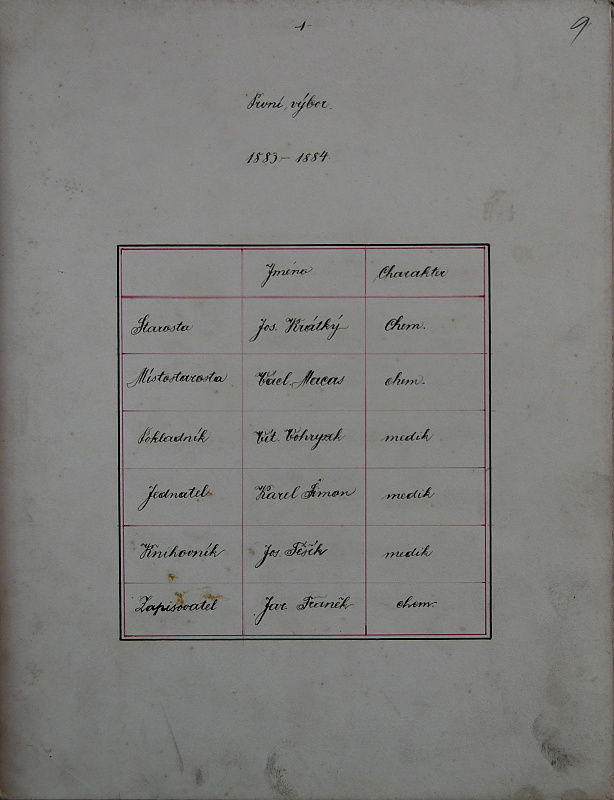 1
9
První výbor.
1883 – 1884
Jméno Charakter
Starosta Jos. Krátký Chem.
Místostarosta Václ. Macas chem.
Pokladník Vít. Vohryzek medik
Jednatel Karel Šimon medik
Knihovník Jos. Těšík medik
Zapisovatel Jar. Franěk chem.